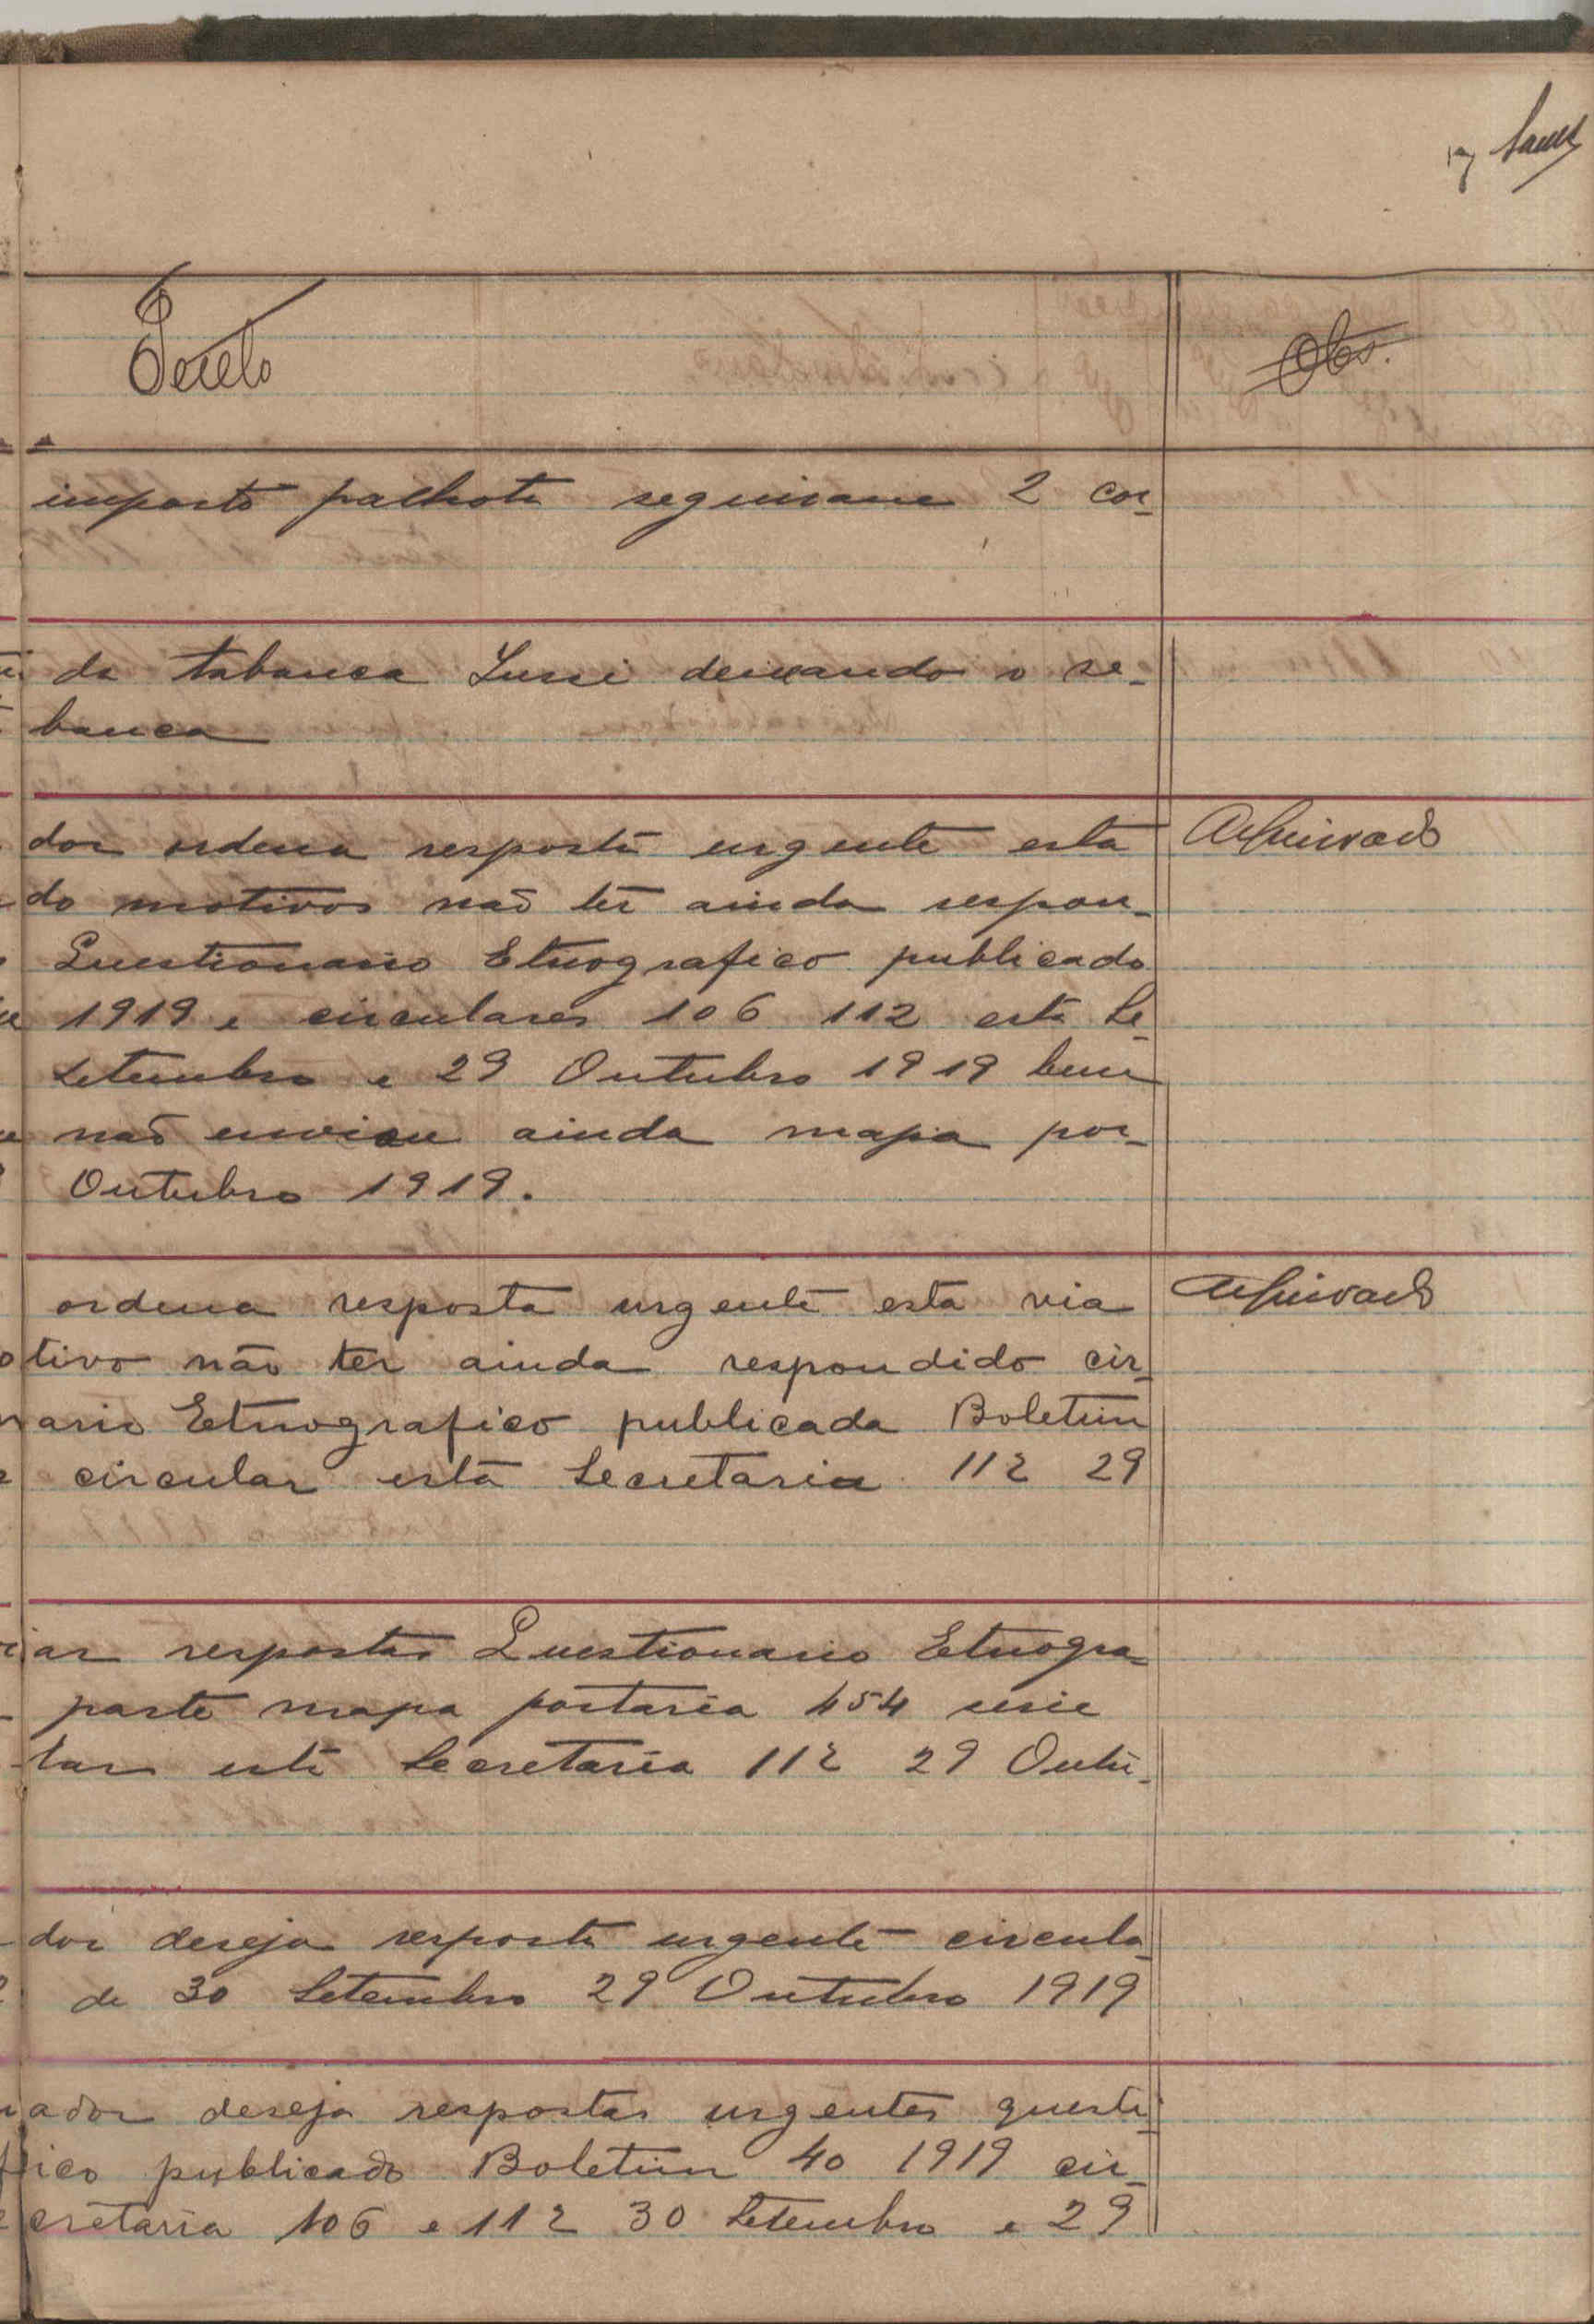 17
Texto
Obs.
imposto palhota seguiram 2 cor-
da tabanca Lussi deixando o se-
banca
dor ordena resposta urgente esta
Arquivado
do motivos não ter ainda respon-
Questionario Etnografico publicado
1919 e circulares 106 112 esta Se-
Setembro e 29 Outubro 1919 bem
não enviou ainda mapa por-
Outubro 1919.
ordena resposta urgente esta via
Arquivado
otivo não ter ainda respondido cir-
nario Etnografico publicada Boletim
circular esta Secretaria 112 29
iar respostas Questionario Etnogra-
parte mapa portaria 454 serie
lar esta Secretaria 112 29 Outu-
dor deseja resposta urgente circula-
de 30 Setembro 29 Outubro 1919
nador deseja respostas urgentes questi-
fico publicado Boletim 40 1919 cir-
ecretaria 106 e 112 30 Setembro e 29